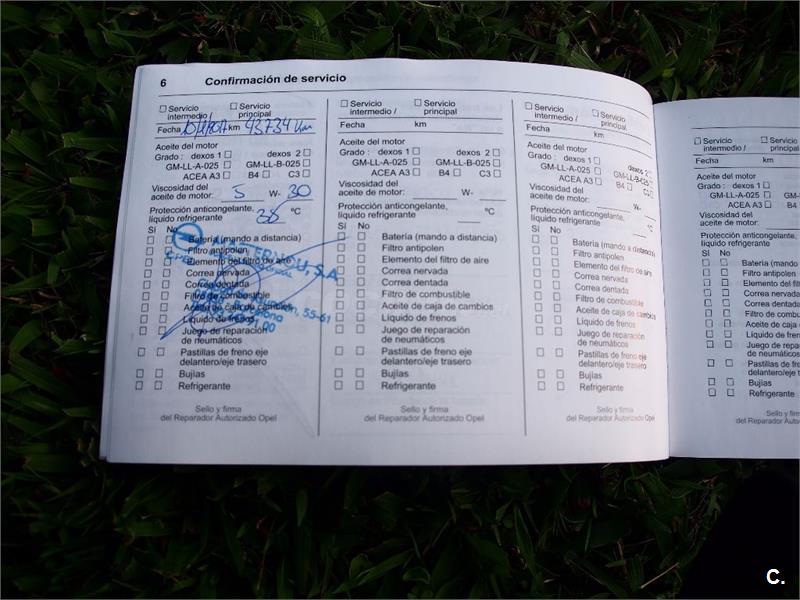 6 Confirmación de servicio
Servicio intermedio /
Servicio principal
Fecha km 43734 km
Aceite del motor
Grado : dexos 1 dexos 2
GM-LL-A-025 GM-LL-B-025
ACEA A3 B4 C3
Viscosidad del
aceite de motor: 5 W- 30
Protección anticongelante,
líquido refrigerante °C
Sí No
Batería (mando a distancia)
Filtro antipolen
Elemento del filtro de aire
Correa nervada
Correa dentada
Filtro de combustible
Aceite de caja de cambios
Líquido de frenos
Juego de reparación
de neumáticos
Pastillas de freno eje
delantero/eje trasero
Bujías
Refrigerante
Sello y firma
del Reparador Autorizado Opel
S.A.
55-61
Servicio intermedio /
Servicio principal
Fecha km
Aceite del motor
Grado : dexos 1 dexos 2
GM-LL-A-025 GM-LL-B-025
ACEA A3 B4 C3
Viscosidad del
aceite de motor: W-
Protección anticongelante,
líquido refrigerante °C
Sí No
Batería (mando a distancia)
Filtro antipolen
Elemento del filtro de aire
Correa nervada
Correa dentada
Filtro de combustible
Aceite de caja de cambios
Líquido de frenos
Juego de reparación
de neumáticos
Pastillas de freno eje
delantero/eje trasero
Bujías
Refrigerante
Sello y firma
del Reparador Autorizado Opel
Servicio intermedio /
Servicio principal
Fecha km
Aceite del motor
Grado : dexos 1 dexos 2
GM-LL-A-025 GM-LL-B-025
ACEA A3 B4 C3
Viscosidad del
aceite de motor: W-
Protección anticongelante,
líquido refrigerante °C
Sí No
Batería (mando a distancia)
Filtro antipolen
Elemento del filtro de aire
Correa nervada
Correa dentada
Filtro de combustible
Aceite de caja de cambios
Líquido de frenos
Juego de reparación
de neumáticos
Pastillas de freno eje
delantero/eje trasero
Bujías
Refrigerante
Sello y firma
del Reparador Autorizado Opel
Servicio intermedio /
Servicio principal
Fecha km
Aceite del motor
Grado : dexos 1
GM-LL-A-025
ACEA A3 B4
Viscosidad del
aceite de motor:
Protección anticongelante,
líquido refrigerante
Sí No
Batería (mando a
Filtro antipolen
Elemento del
Correa nervada
Correa dentada
Filtro de combu
Aceite de caja
Líquido de fren
Juego de repara
de neumáticos
Pastillas de fre
delantero/eje tra
Bujías
Refrigerante
Sello y fir
del Reparador Autor
C.